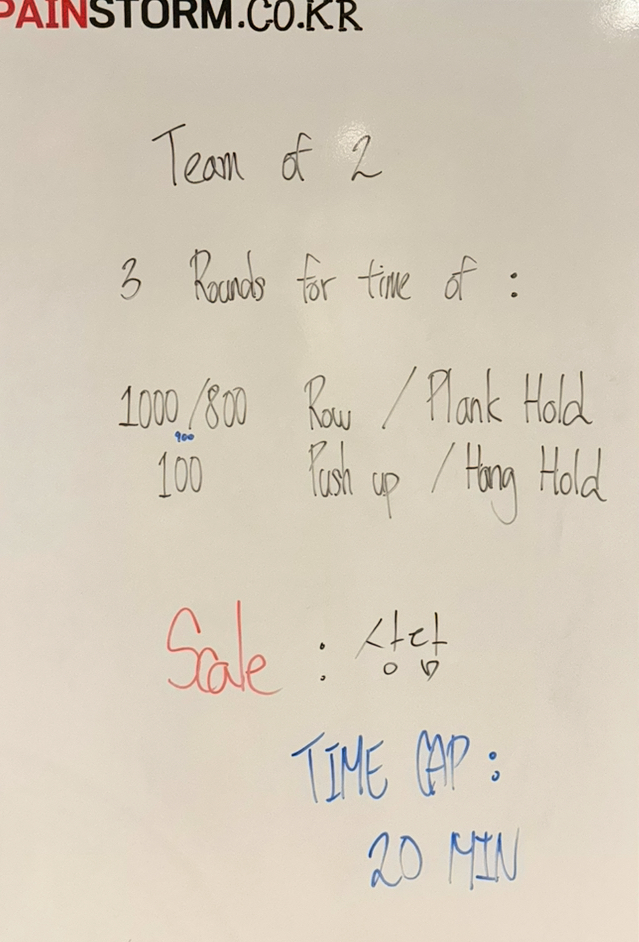 PAINSTORM.CO.KR
Team of 2
3 Rounds for time of :
1000/800 Row / Plank Hold
900
100 Push up / Hang Hold
Scale : 상담
TIME CAP :
20 MIN